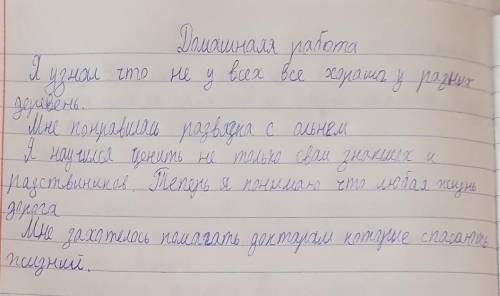 Домашнаяя работа
Я узнал что не у всех все хорашо у разних
деревень.
Мне понравилась развязка с ольнем
Я научился ценить не только свай знакших и
разствиников. Теперь я понимаю что любая жизнь
дорога
Мне захателось помагать доктарам которие спасають
жизний.